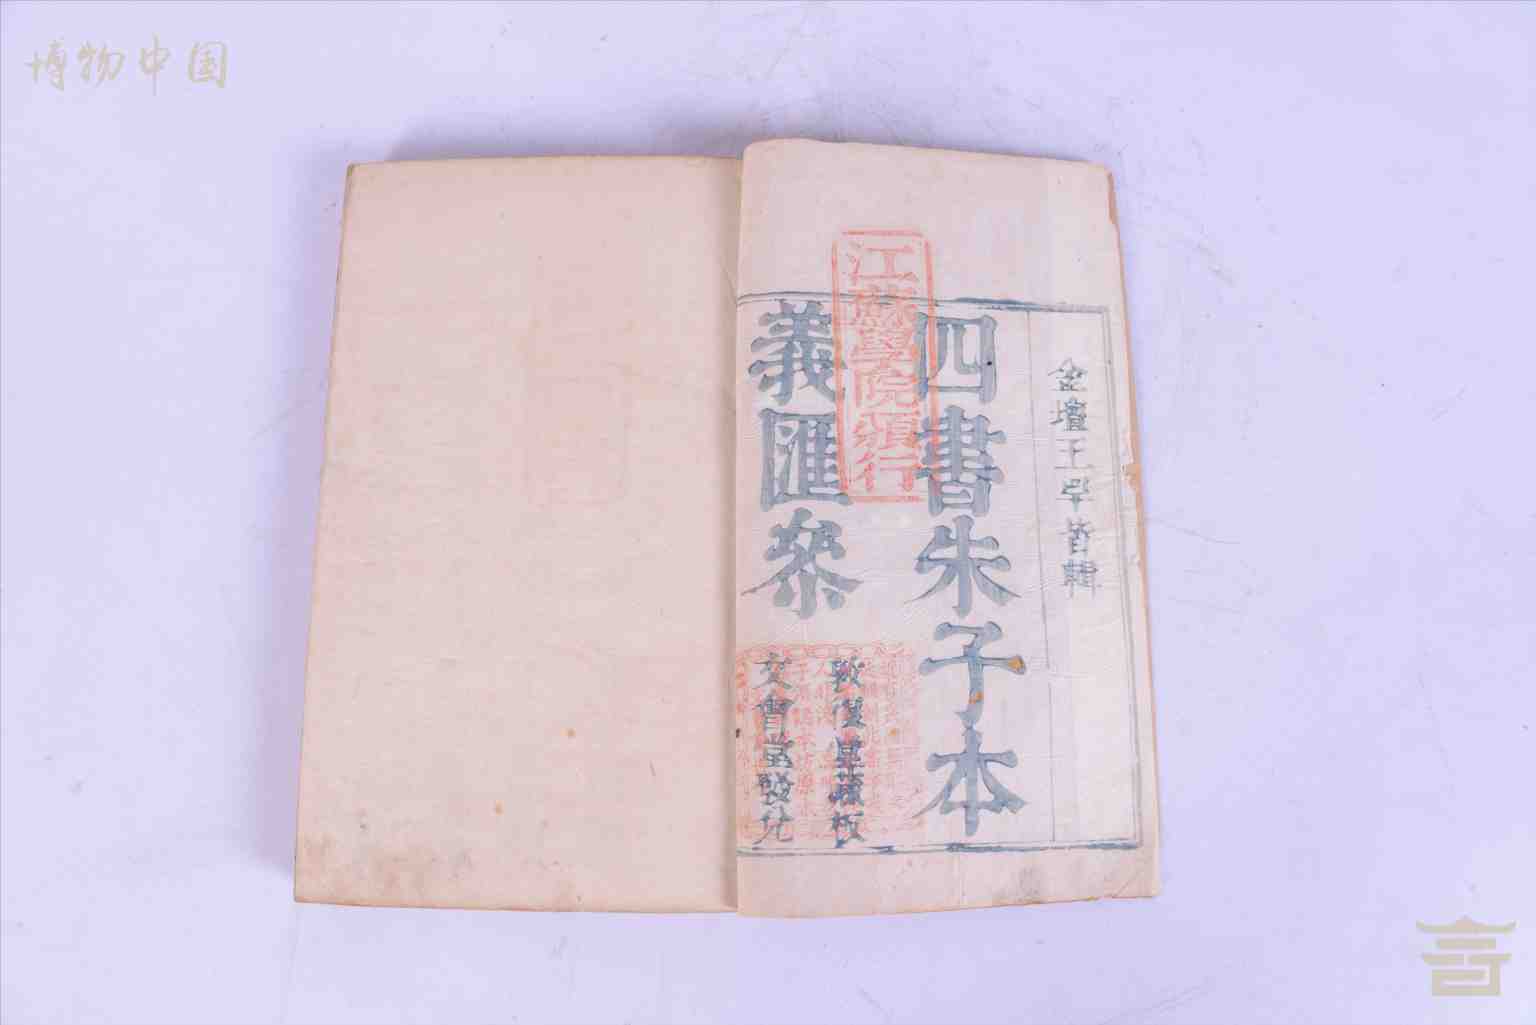 博物中国
金壇王罕皆輯
四書朱子本
義匯叅
江蘇學院頒行
敦復堂藏板
文會堂發兌